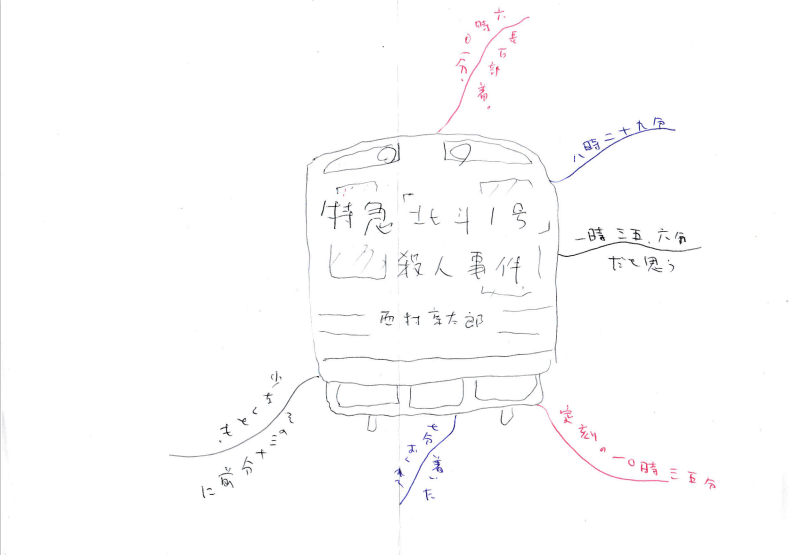 六時〇一分、
長万部着。
八時二十九分
特急「北斗1号」
殺人事件
西村京太郎
一時三五、六分
だと思う
少なくとも、
その三十分前に
七分おくれて
着いた
定刻の一〇時三五分